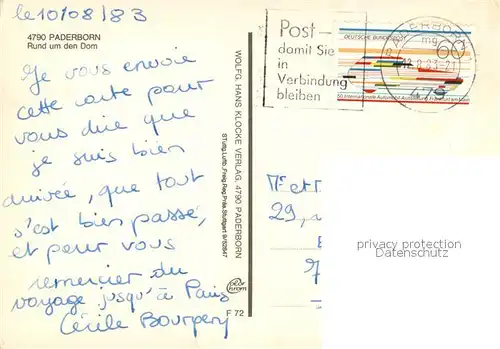 le 10/08/83
4790 PADERBORN
Rund um den Dom
Je vous envoie
cette carte pour
vous dire que
je suis bien
arrivée, que tout
s'est bien passé,
et pour vous
remercier du
voyage jusqu'à Paris
Cécile Bourgery
WOLFG. HANS KLOCKE VERLAG, 4790 PADERBORN
STuttg.Luftb./Freig.Reg.Präs.Stuttgart 9/52647
F 72
Post -
damit Sie
in
Verbindung
bleiben
DEUTSCHE BUNDESPOST
60
50. Internationale Automobil-Ausstellung Frankfurt am Main
PADERBORN
mg
12.8.83-21
479
Mr et
29,
privacy protection
Datenschutz